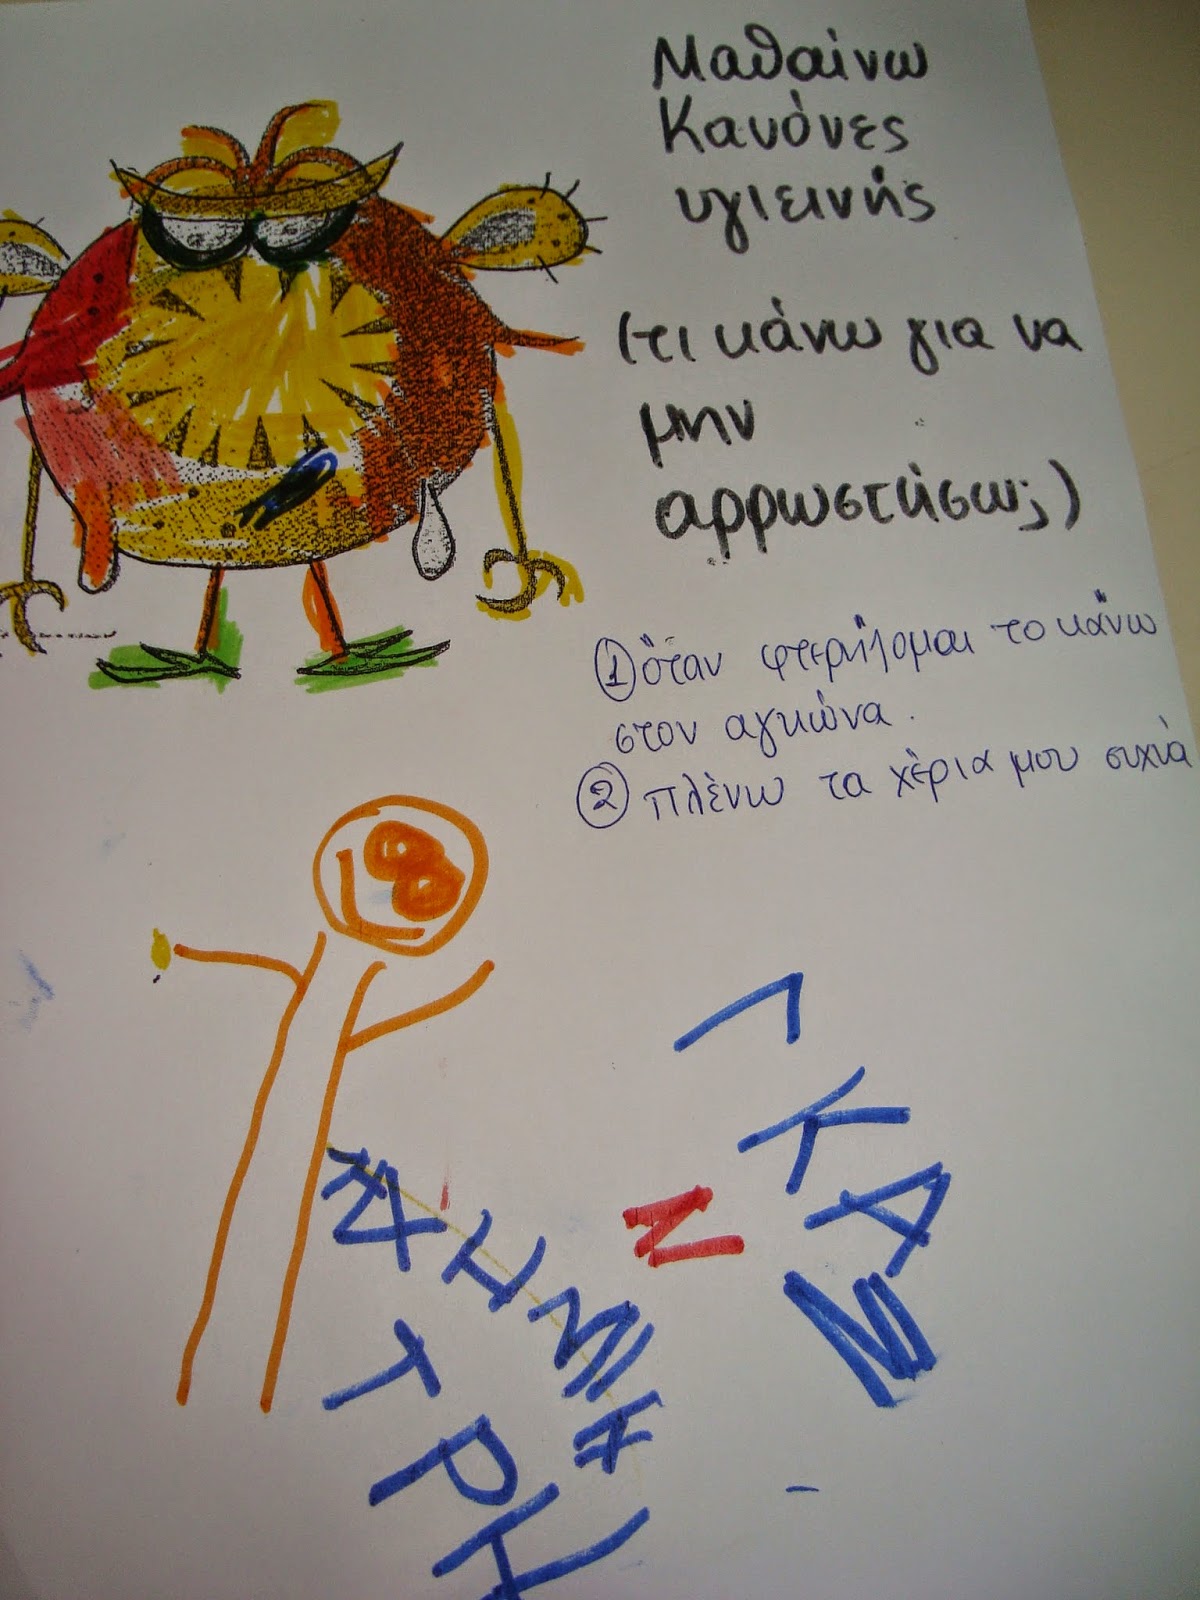 Μαθαίνω
Κανόνες
υγιεινής
(τι κάνω για να
μην
αρρωστήσω;)
① όταν φτερνίζομαι το κάνω
στον αγκώνα.
② πλένω τα χέρια μου συχνά
ΓΚΑΝ
Ν
ΔΗΜΗ
ΤΡΗ